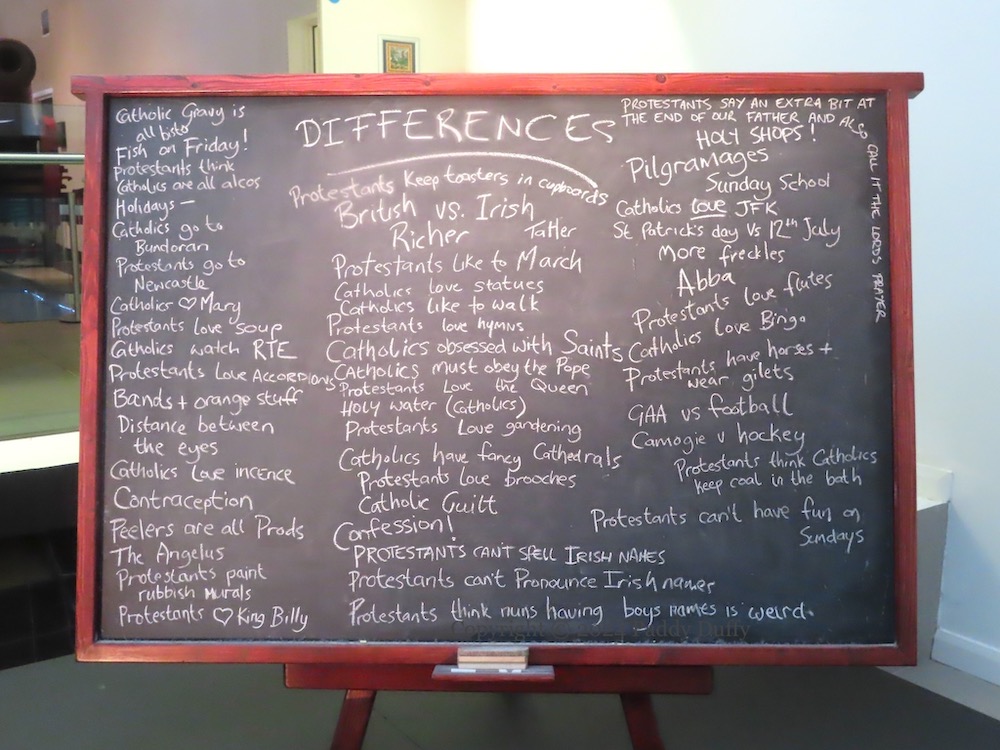 DIFFERENCES
Catholic Gravy is
all bisto
Fish on Friday!
Protestants think
Catholics are all alcos
Holidays –
Catholics go to
Bundoran
Protestants go to
Newcastle
Catholics ♡ Mary
Protestants love soup
Catholics watch RTE
Protestants Love Accordions
Bands + orange stuff
Distance between
the eyes
Catholics love incence
Contraception
Peelers are all Prods
The Angelus
Protestants paint
rubbish murals
Protestants ♡ King Billy
Protestants Keep toasters in cupboards
British vs. Irish
Richer Tatler
Protestants like to March
Catholics love statues
Catholics like to walk
Protestants love hymns
Catholics obsessed with Saints
Catholics must obey the Pope
Protestants Love the Queen
HOLY water (Catholics)
Protestants Love gardening
Catholics have fancy Cathedrals
Protestants Love brooches
Catholic Guilt
Confession!
PROTESTANTS CAN'T SPELL IRISH NAMES
Protestants can't Pronounce Irish names
Protestants think nuns having boys names is weird.
PROTESTANTS SAY AN EXTRA BIT AT
THE END OF OUR FATHER AND ALSO
CALL IT THE LORDS PRAYER
HOLY SHOPS!
Pilgramages
Sunday School
Catholics love JFK
St Patrick's day Vs 12th July
More freckles
Abba
Protestants love flutes
Catholics Love Bingo
Protestants have horses +
wear gilets
GAA vs football
Camogie v hockey
Protestants think Catholics
keep coal in the bath
Protestants can't have fun on
Sundays
Paddy Duffy